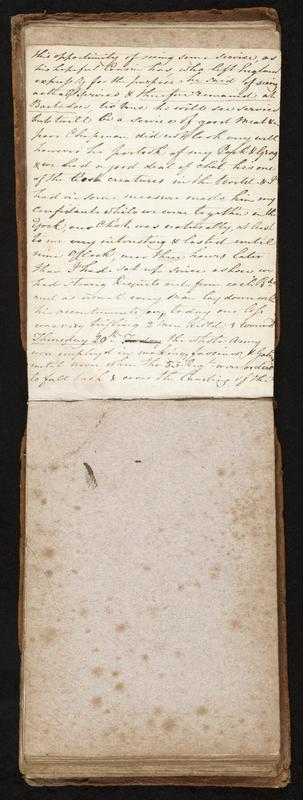 this opportunity of seeing some service, as
his hopeful Cousin has who left England
expressly for the purpose he said of seeing
actual Service & therefore remains at
Barbadoes, tis true he will see service
but twill be a service of good Meat &
poor Chapman did not look very well
however he partook of my &
we had a good deal of chat, he is one
of the best creatures in the World & I
had in some measure made him my
Confidant while we were together on the
our Chat was naturally, at least
to me very interesting & lasted until
nine oClock, near three hours later
than I had sat up since ashore we
had strong Piquets out from each
and as usual every Man lay down with
his accoutrements on, today our loss
was very trifling 2 men Kill'd & wound
Thursday 20th Today the whole Army
were employ'd in making &
until noon when the 53 Regt were order'd
to fall back & cover the Landing of the